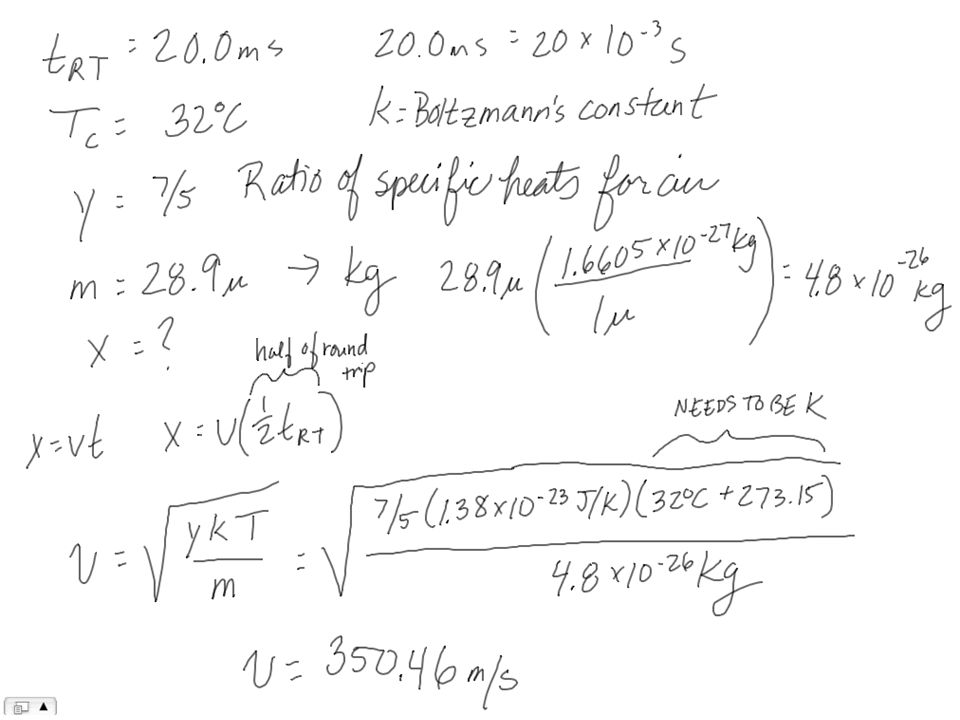 t_RT = 20.0ms 20.0ms = 20 × 10^-3 s
T_c = 32°C k = Boltzmann's constant
γ = 7/5 Ratio of specific heats for air
m = 28.9u → kg 28.9u (1.6605×10^-27 kg / 1u) = 4.8 × 10^-26 kg
x = ?
half of round trip
x = vt x = v(1/2 t_RT)
NEEDS TO BE K
v = √(γkT / m) = √(7/5 (1.38×10^-23 J/K)(32°C + 273.15) / 4.8 × 10^-26 kg)
v = 350.46 m/s